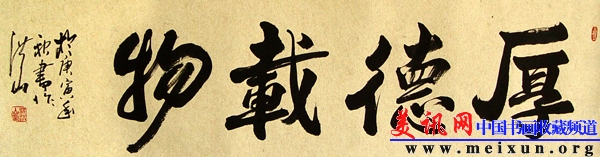 厚德載物
於庚寅年
秋書作
洪山
美讯网 中国书画收藏频道
www.meixun.org